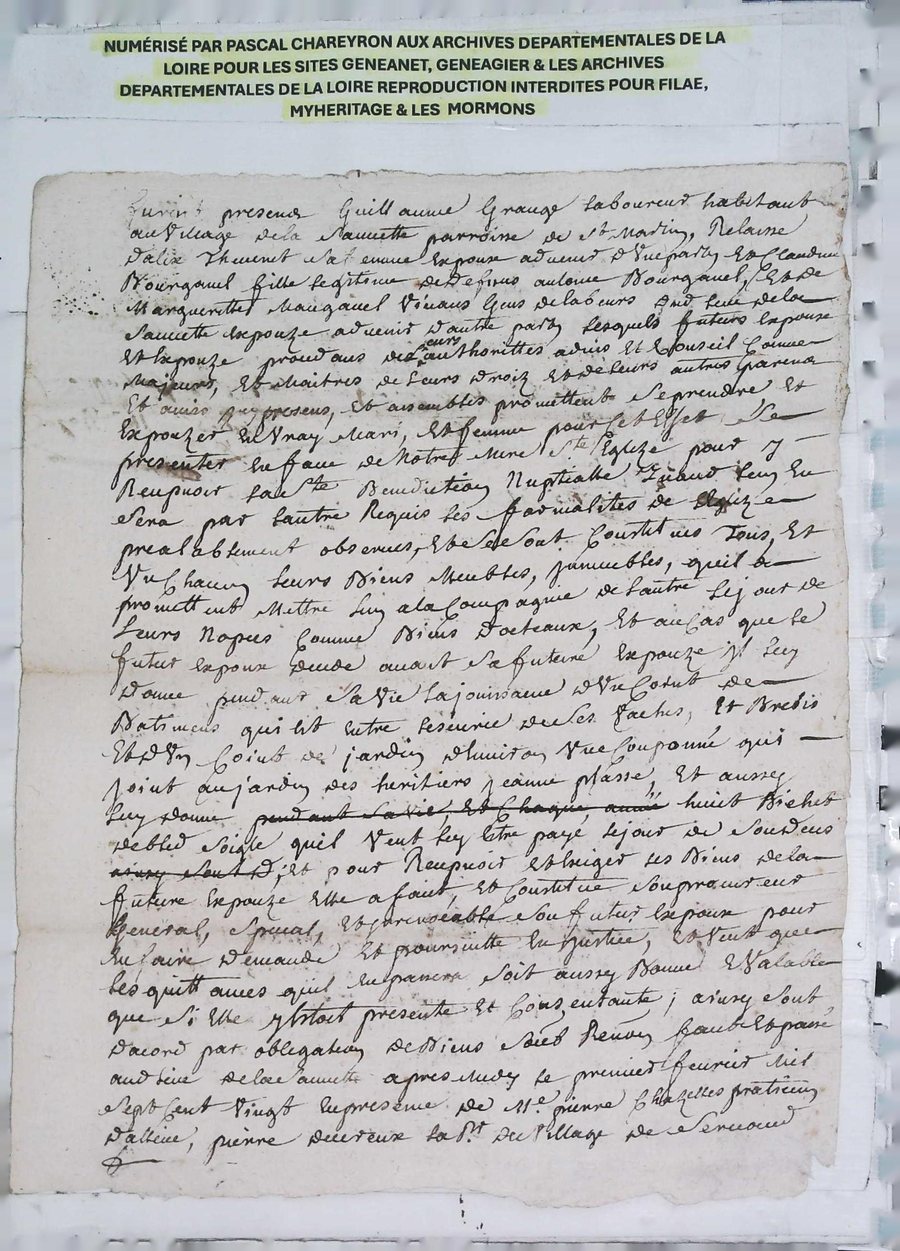 NUMÉRISÉ PAR PASCAL CHAREYRON AUX ARCHIVES DEPARTEMENTALES DE LA
LOIRE POUR LES SITES GENEANET, GENEAGIER & LES ARCHIVES
DEPARTEMENTALES DE LA LOIRE REPRODUCTION INTERDITES POUR FILAE,
MYHERITAGE & LES MORMONS
furent presens Guillaume Grange laboureur habitant
au Village de la Sauvette parroisse de St Martin, Relaisse
dalix Thevenet sa femme Expoux advenir d'Vne part Et Claudine
Bourganel fille legitime de deffuns antoine Bourganel, Et de
Margueritte Mauganel Vivans Gens de labeurs dud lieu de la
Sauvette Expouze advenir d'autre part, lesquels futurs Expoux
Et Expouze procedans de leurs authorittes advis Et Conseil Comme
Majeurs, Et Maitres de leurs droiz Et de leurs autres parens
Et amis presens, Et assemblés promettent se prendre Et
Expouzer En Vray Mari, Et femme pour Cet Effet se
presenter En face de Notre Mere Ste Eglize pour y
Recepvoir la Ste Benediction Nuptialle quand lun En
sera par lautre Requis les formalites de Eglize
prealablement observees, Et se sont Constitues Tous, Et
Vn Chacun leurs Biens Meubles, jmmeubles, quil
promettent Mettre lun a la Compagnie de lautre le jour de
leurs Nopces Comme Biens doteaux, Et au Cas que le
futur Expoux decede avant sa future Expouze jl luy
donne pendant sa Vie la jouissance d'Vn Coint de
Batimens qui est Entre lescurie de ses Vaches, Et Brebis
Et d'Vn Coint de jardin denviron Vne Couponné qui
joint au jardin des heritiers jeanne plasse, Et aussy
luy donne pendant sa Vie, Et Chaque année huict Bichet
de bled Soigle quil Veut luy Etre payé le jour de son deces
ainsy sont d ; Et pour Recepvoir Et Exiger les Biens de la
future Expouze Elle a fait, Et Constitue son procureur
General, special, Et jrrevocable son futur Expoux pour
En faire demande Et poursuitte En justice, Et Veut que
les quittances quil En passera soit aussy Bonne Et Valable
que si Elle y Estoit presente Et Consentante ; ainsy sont
dacord par obligation de Biens soub Renon fait Et passé
aud lieu de la Sauvette apres Midy le premier fevrier Mil
sept Cent Vingt En presence de Me pierre Chazelles praticien
dallieu, pierre decreux labr du Village de Servaud